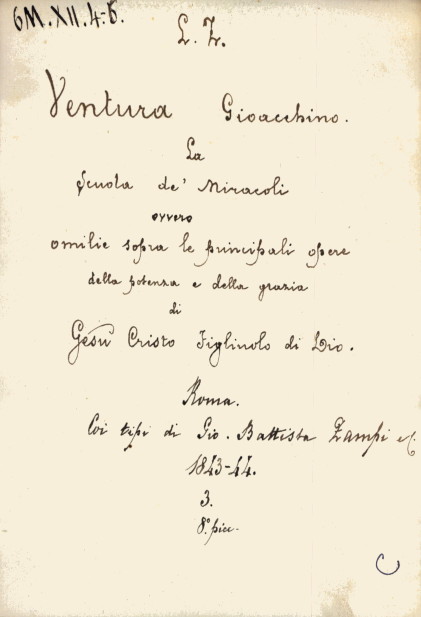 6M.XII.4-5.
L. Z.
Ventura Gioacchino.
La
Scuola de' Miracoli
ovvero
omilie sopra le principali opere
della potenza e della grazia
di
Gesù Cristo Figliuolo di Dio.
Roma.
Coi tipi di Gio. Battista Zampi e C.
1843-44.
3.
8.° picc.